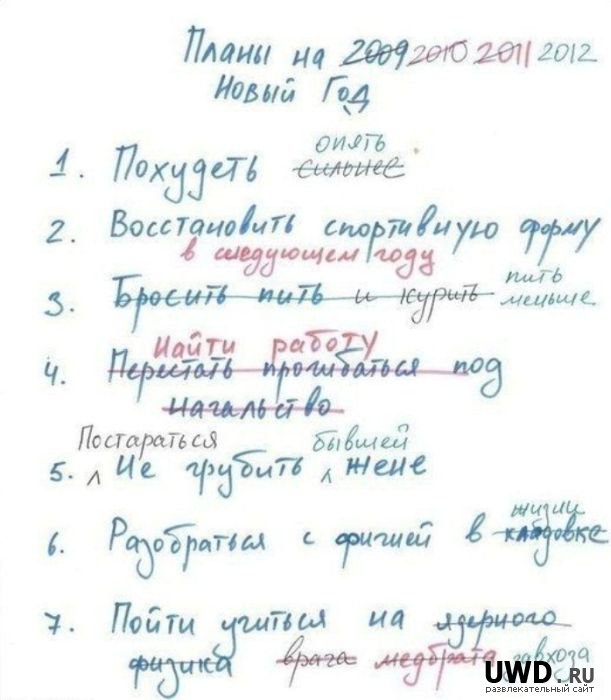 Планы на 2009 2010 2011 2012
Новый Год
опять
1. Похудеть сильнее
2. Восстановить спортивную форму
в следующем году
пить
3. Бросить пить и курить меньше
Найти работу
4. Перестать прогибаться под
начальство
Постараться бывшей
5. Не грубить жене
жизни
6. Разобраться с фигней в кладовке
7. Пойти учиться на ядерного
физика врача медбрата завхоза
UWD.RU
развлекательный сайт